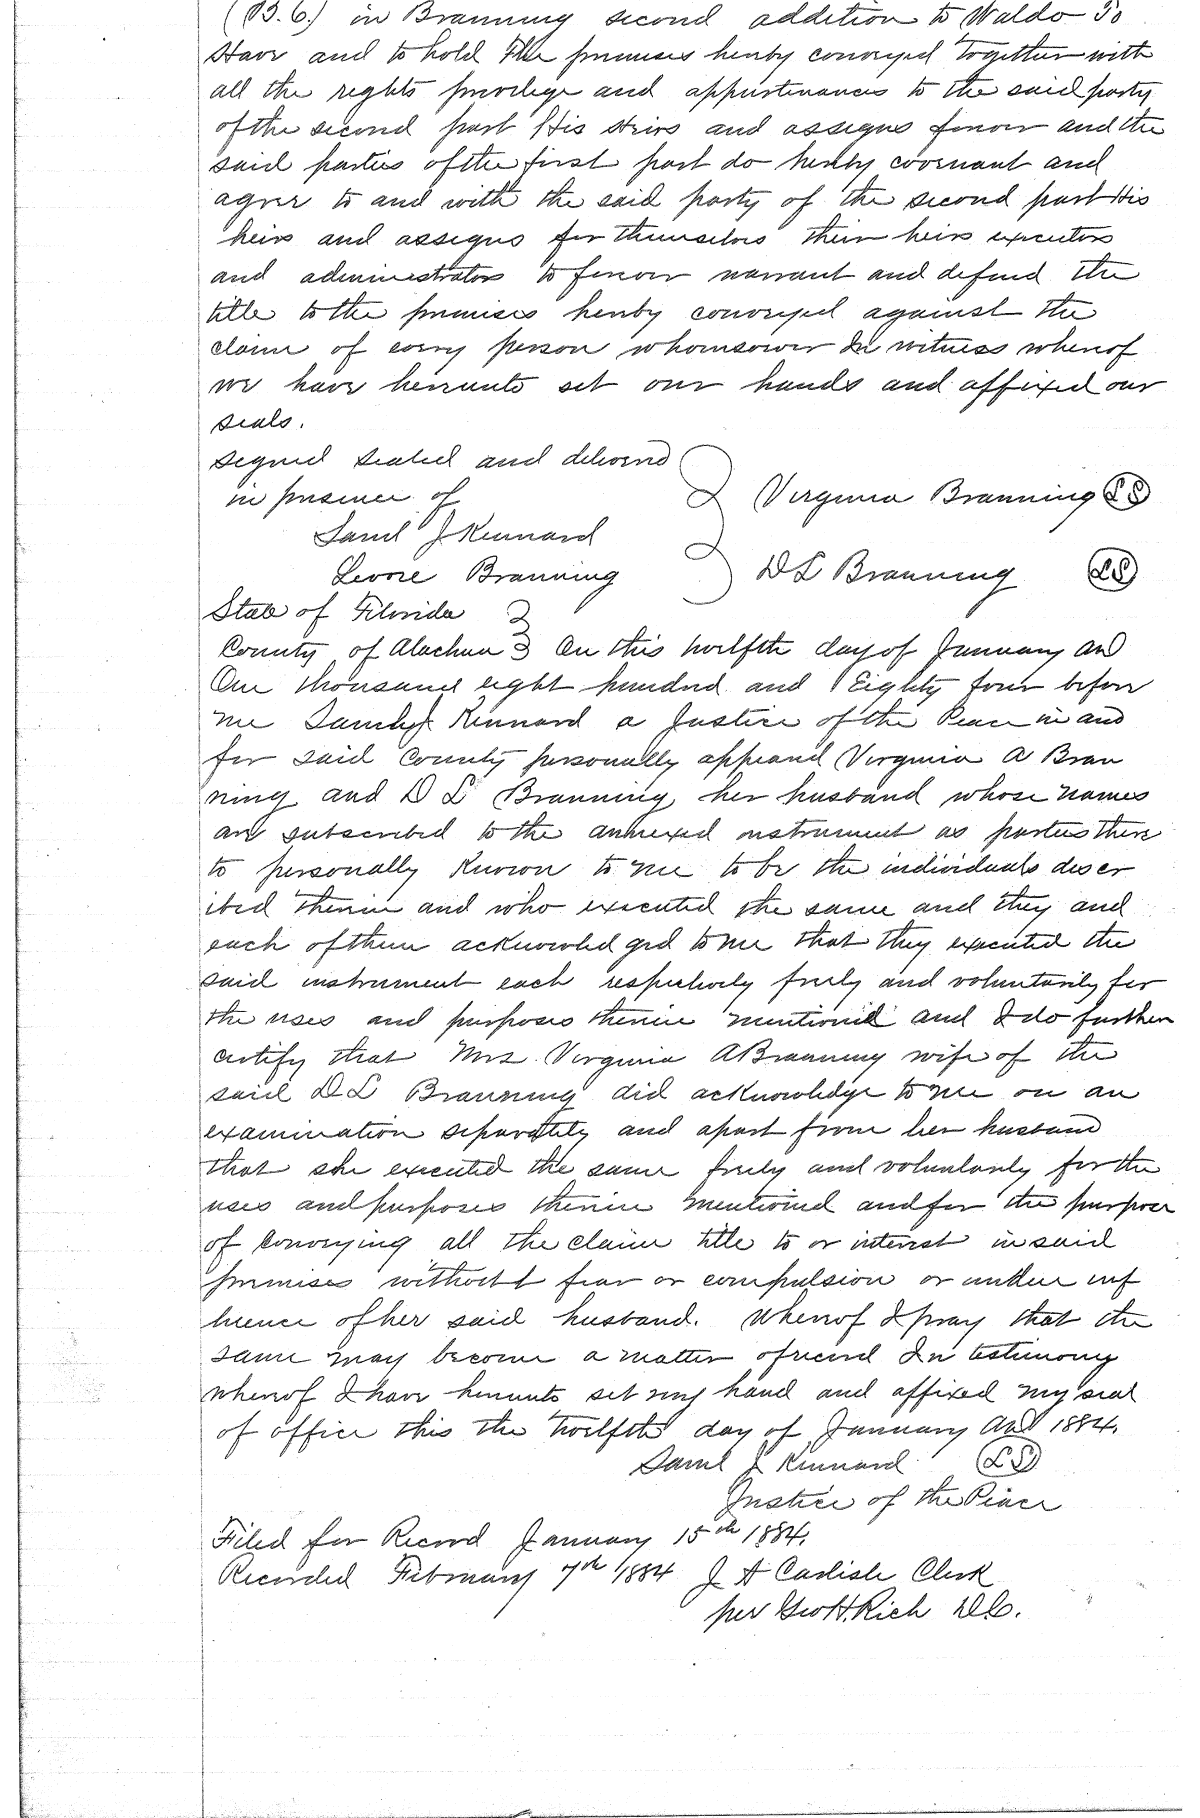 (B. 6.) in Branning second addition to Waldo To
Have and to hold the premises hereby conveyed together with
all the rights privilege and appurtenances to the said party
of the second part His Heirs and assigns forever and the
said parties of the first part do hereby covenant and
agree to and with the said party of the second part His
heirs and assigns for themselves their heirs executors
and administrators to forever warrant and defend the
title to the premises hereby conveyed against the
claim of every person whomsoever In witness whereof
we have hereunto set our hands and affixed our
seals.
signed sealed and delivered
in presence of
Virginia Branning LS
Saml J Kennard
Branning
D L Branning LS
State of Florida
County of Alachua On this twelfth day of January AD
One thousand eight hundred and Eighty four before
me Saml J Kennard a Justice of the Peace in and
for said County personally appeared Virginia A Bran
ning and D L Branning her husband whose names
are subscribed to the annexed instrument as parties there
to personally known to me to be the individuals descr
ibed therein and who executed the same and they and
each of them acknowledged to me that they executed the
said instrument each respectively freely and voluntarily for
the uses and purposes therein mentioned and I do further
certify that Mrs. Virginia A Branning wife of the
said D L Branning did acknowledge to me on an
examination separately and apart from her husband
that she executed the same freely and voluntarily for the
uses and purposes therein mentioned and for the purpose
of conveying all the claim title to or interest in said
premises without fear or compulsion or undue inf
luence of her said husband. Whereof I pray that the
same may become a matter of record In testimony
whereof I have hereunto set my hand and affixed my seal
of office this the twelfth day of January AD 1884.
Saml J Kennard LS
Justice of the Peace
Filed for Record January 15th 1884.
Recorded February 7th 1884 J A Carlisle Clerk
per Geo H. Rich D.C.